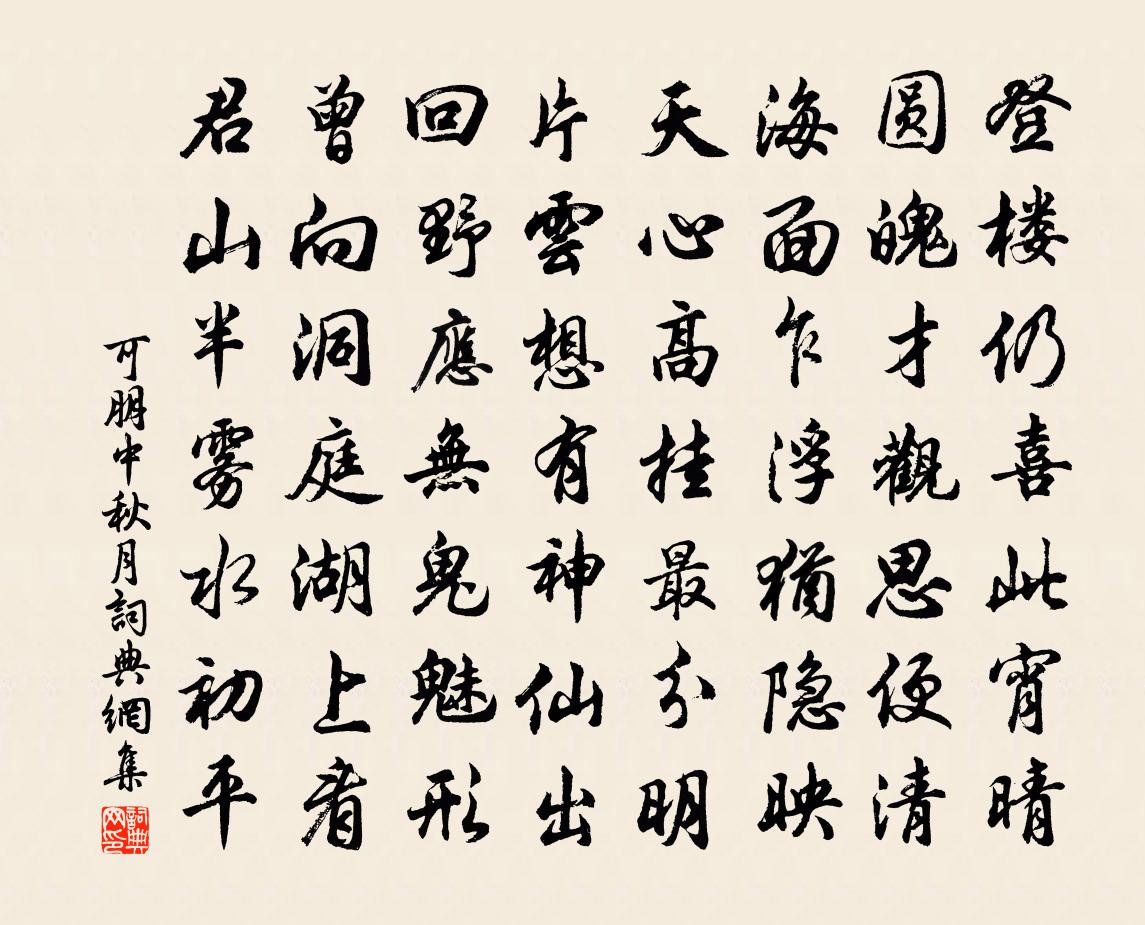 登楼仍喜此宵晴
圆魄才觀思便清
海面乍浮猶隐映
天心高挂最分明
片雲想有神仙出
回野應無鬼魅形
曾向洞庭湖上看
君山半雾水初平
可朋中秋月詞典網集
詞典网印